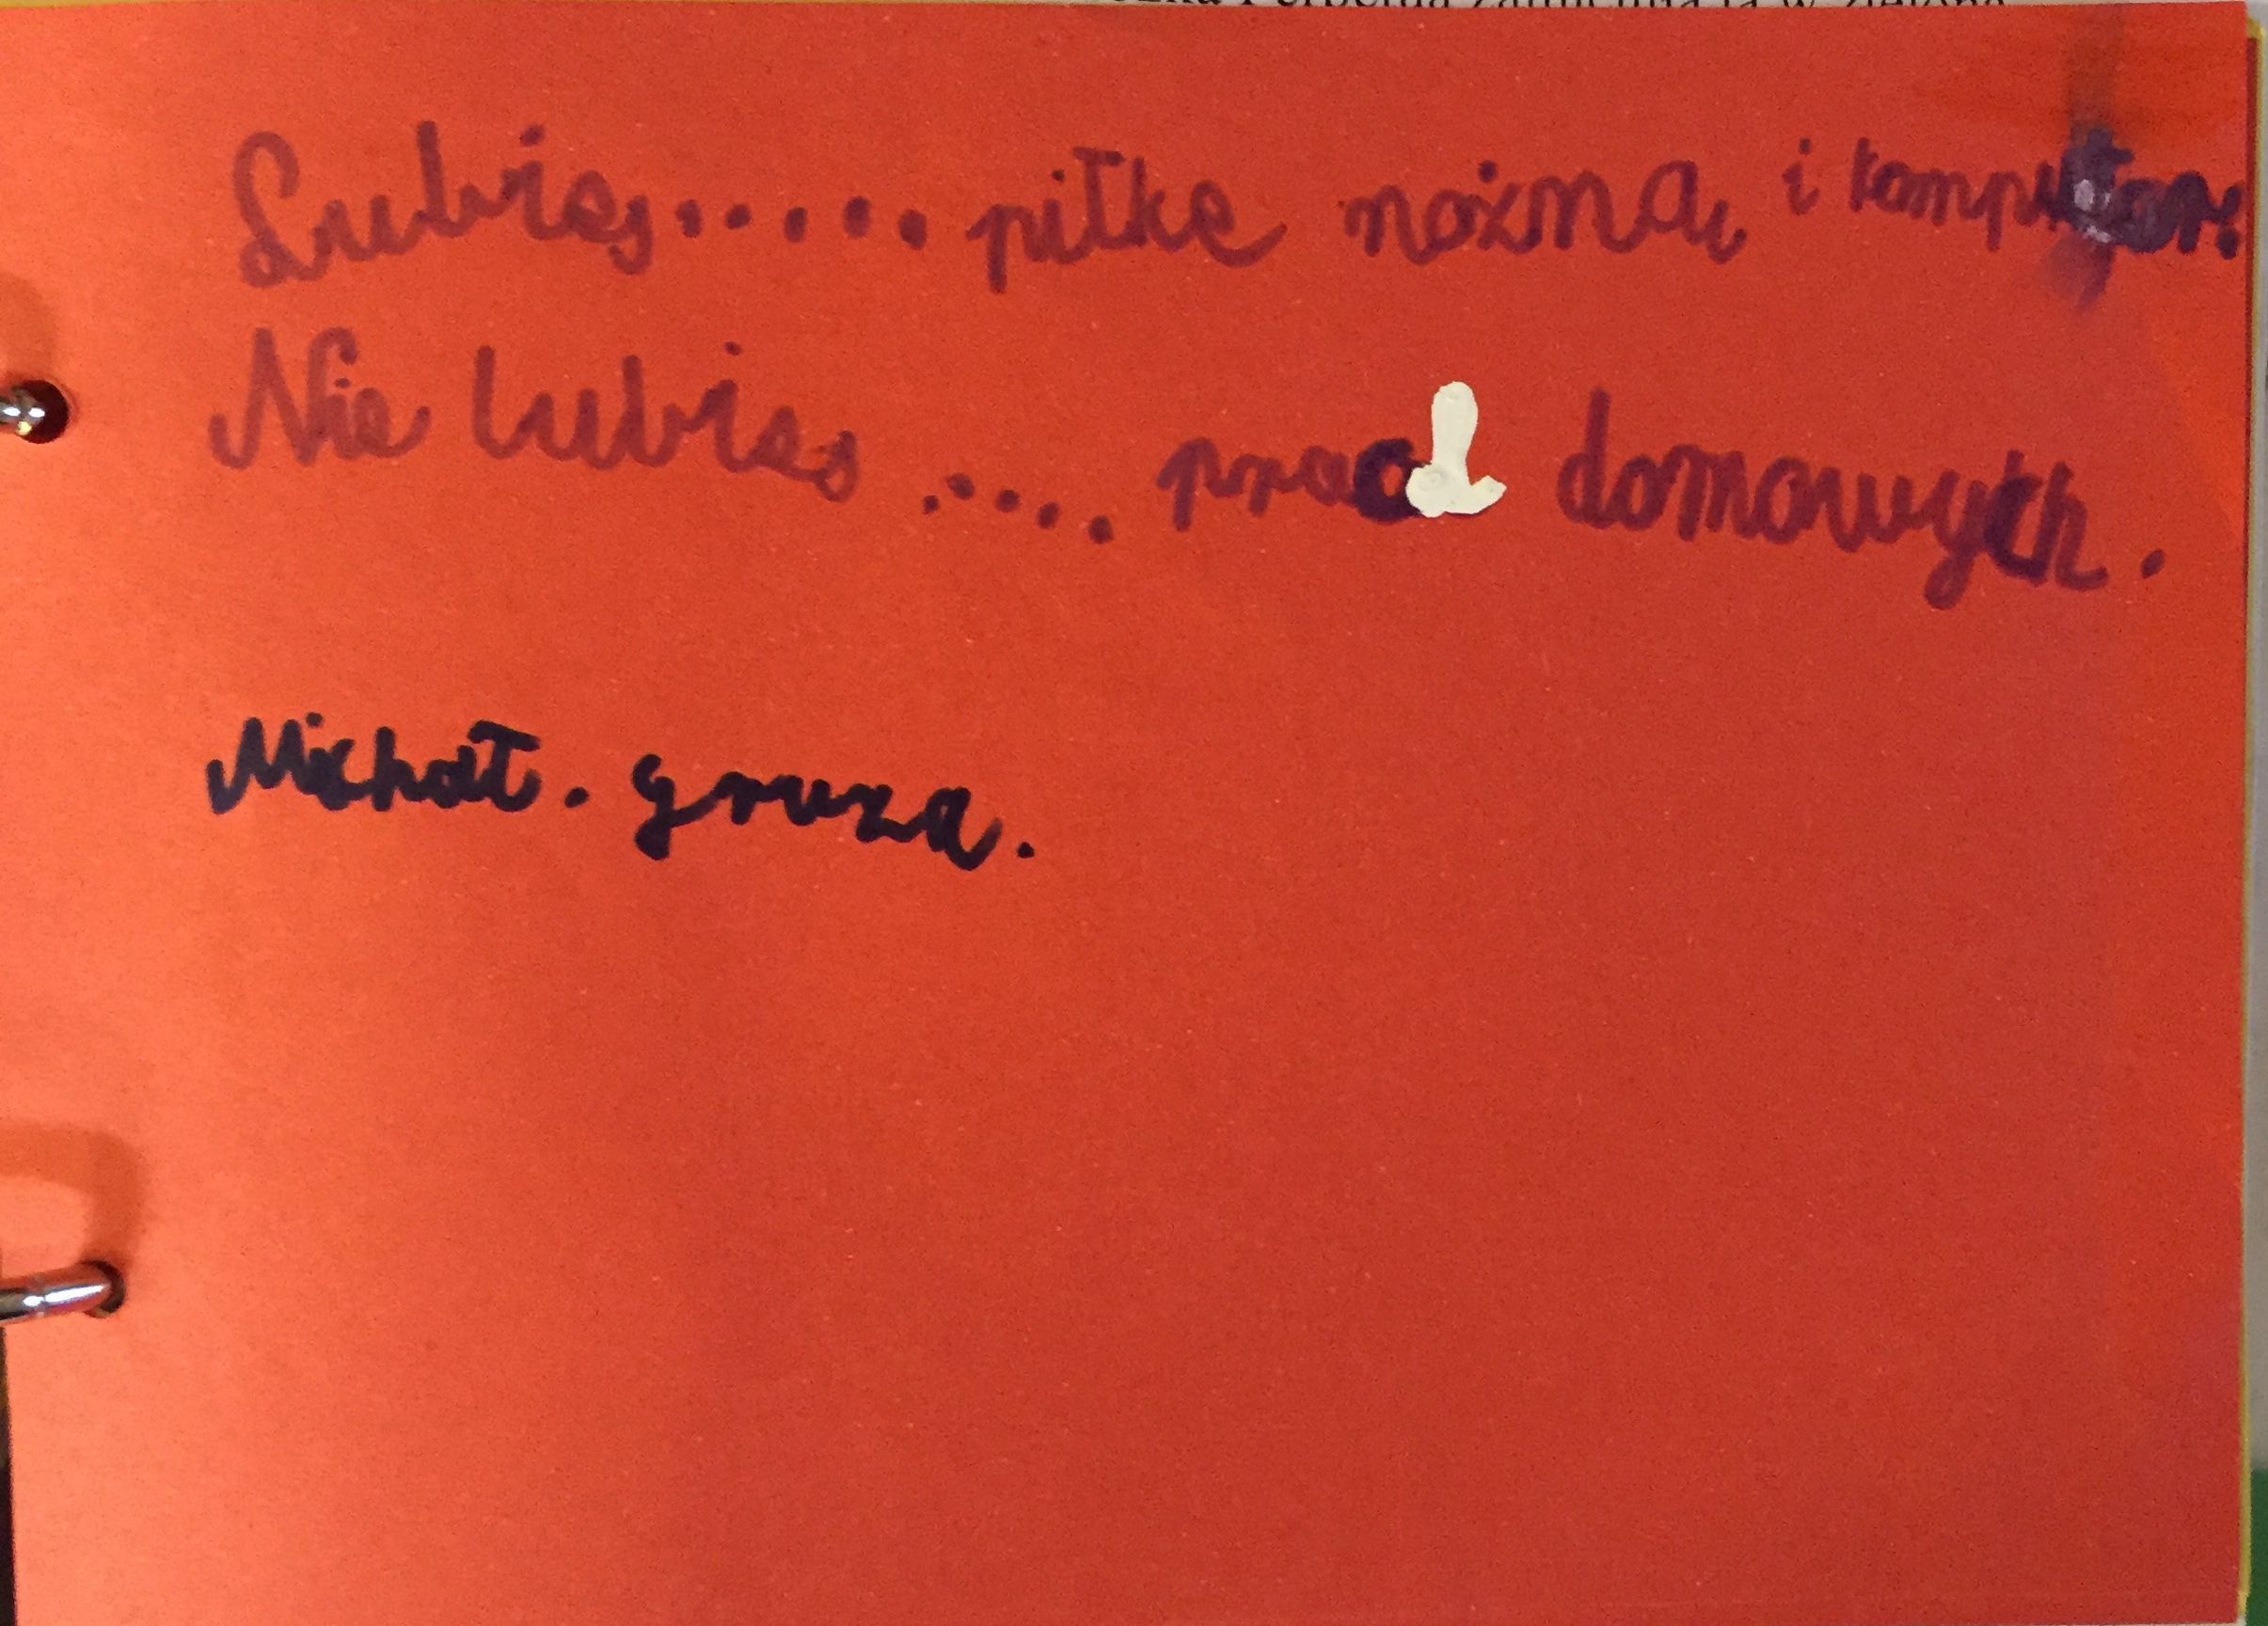 Lubię..... piłkę nożną i komputer.
Nie lubię ..... prac domowych.
Michał. gruza.